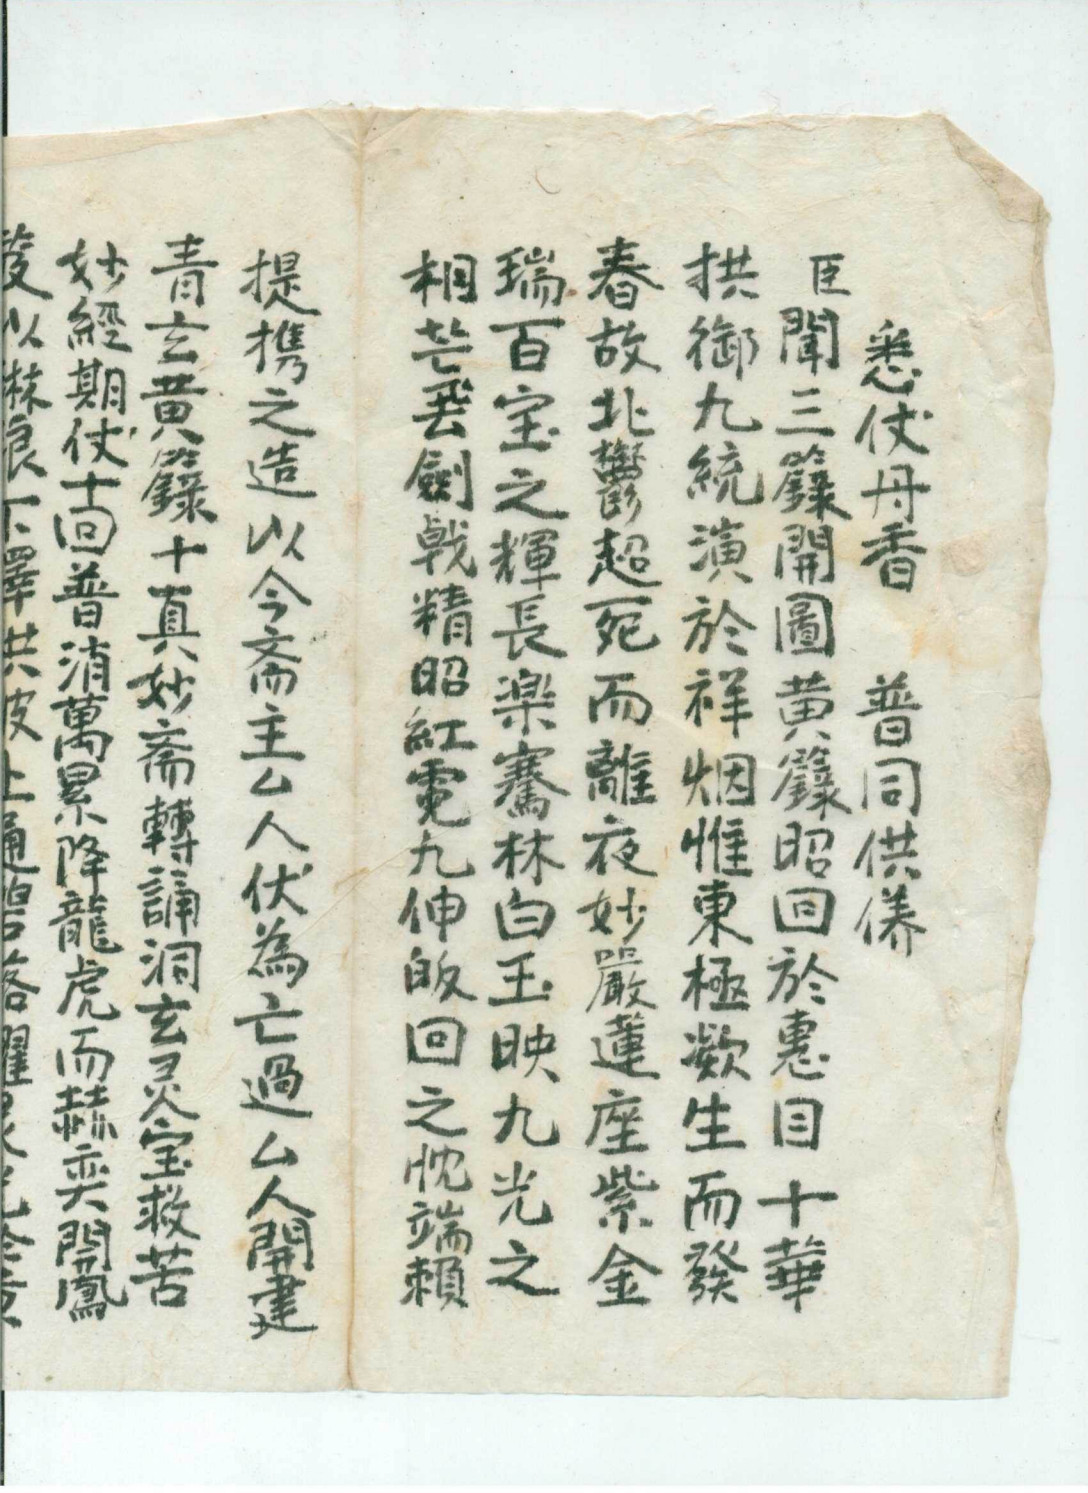 悉仗丹香　普同供养
臣聞三籙開圖黄籙昭回於惠目十華
拱御九統演於祥烟惟東極凝生而發
春故北鬱超死而離夜妙嚴蓮座紫金
瑞百宝之輝長楽騫林白玉映九光之
相芒飛劍戟精昭紅電九伸皈回之忱端賴
提携之造以今斎主厶人伏為亡過厶人開建
青玄黄籙十真妙斎轉誦洞玄灵宝救苦
妙經期仗十回普消萬累降龍虎而赫奕開鳳